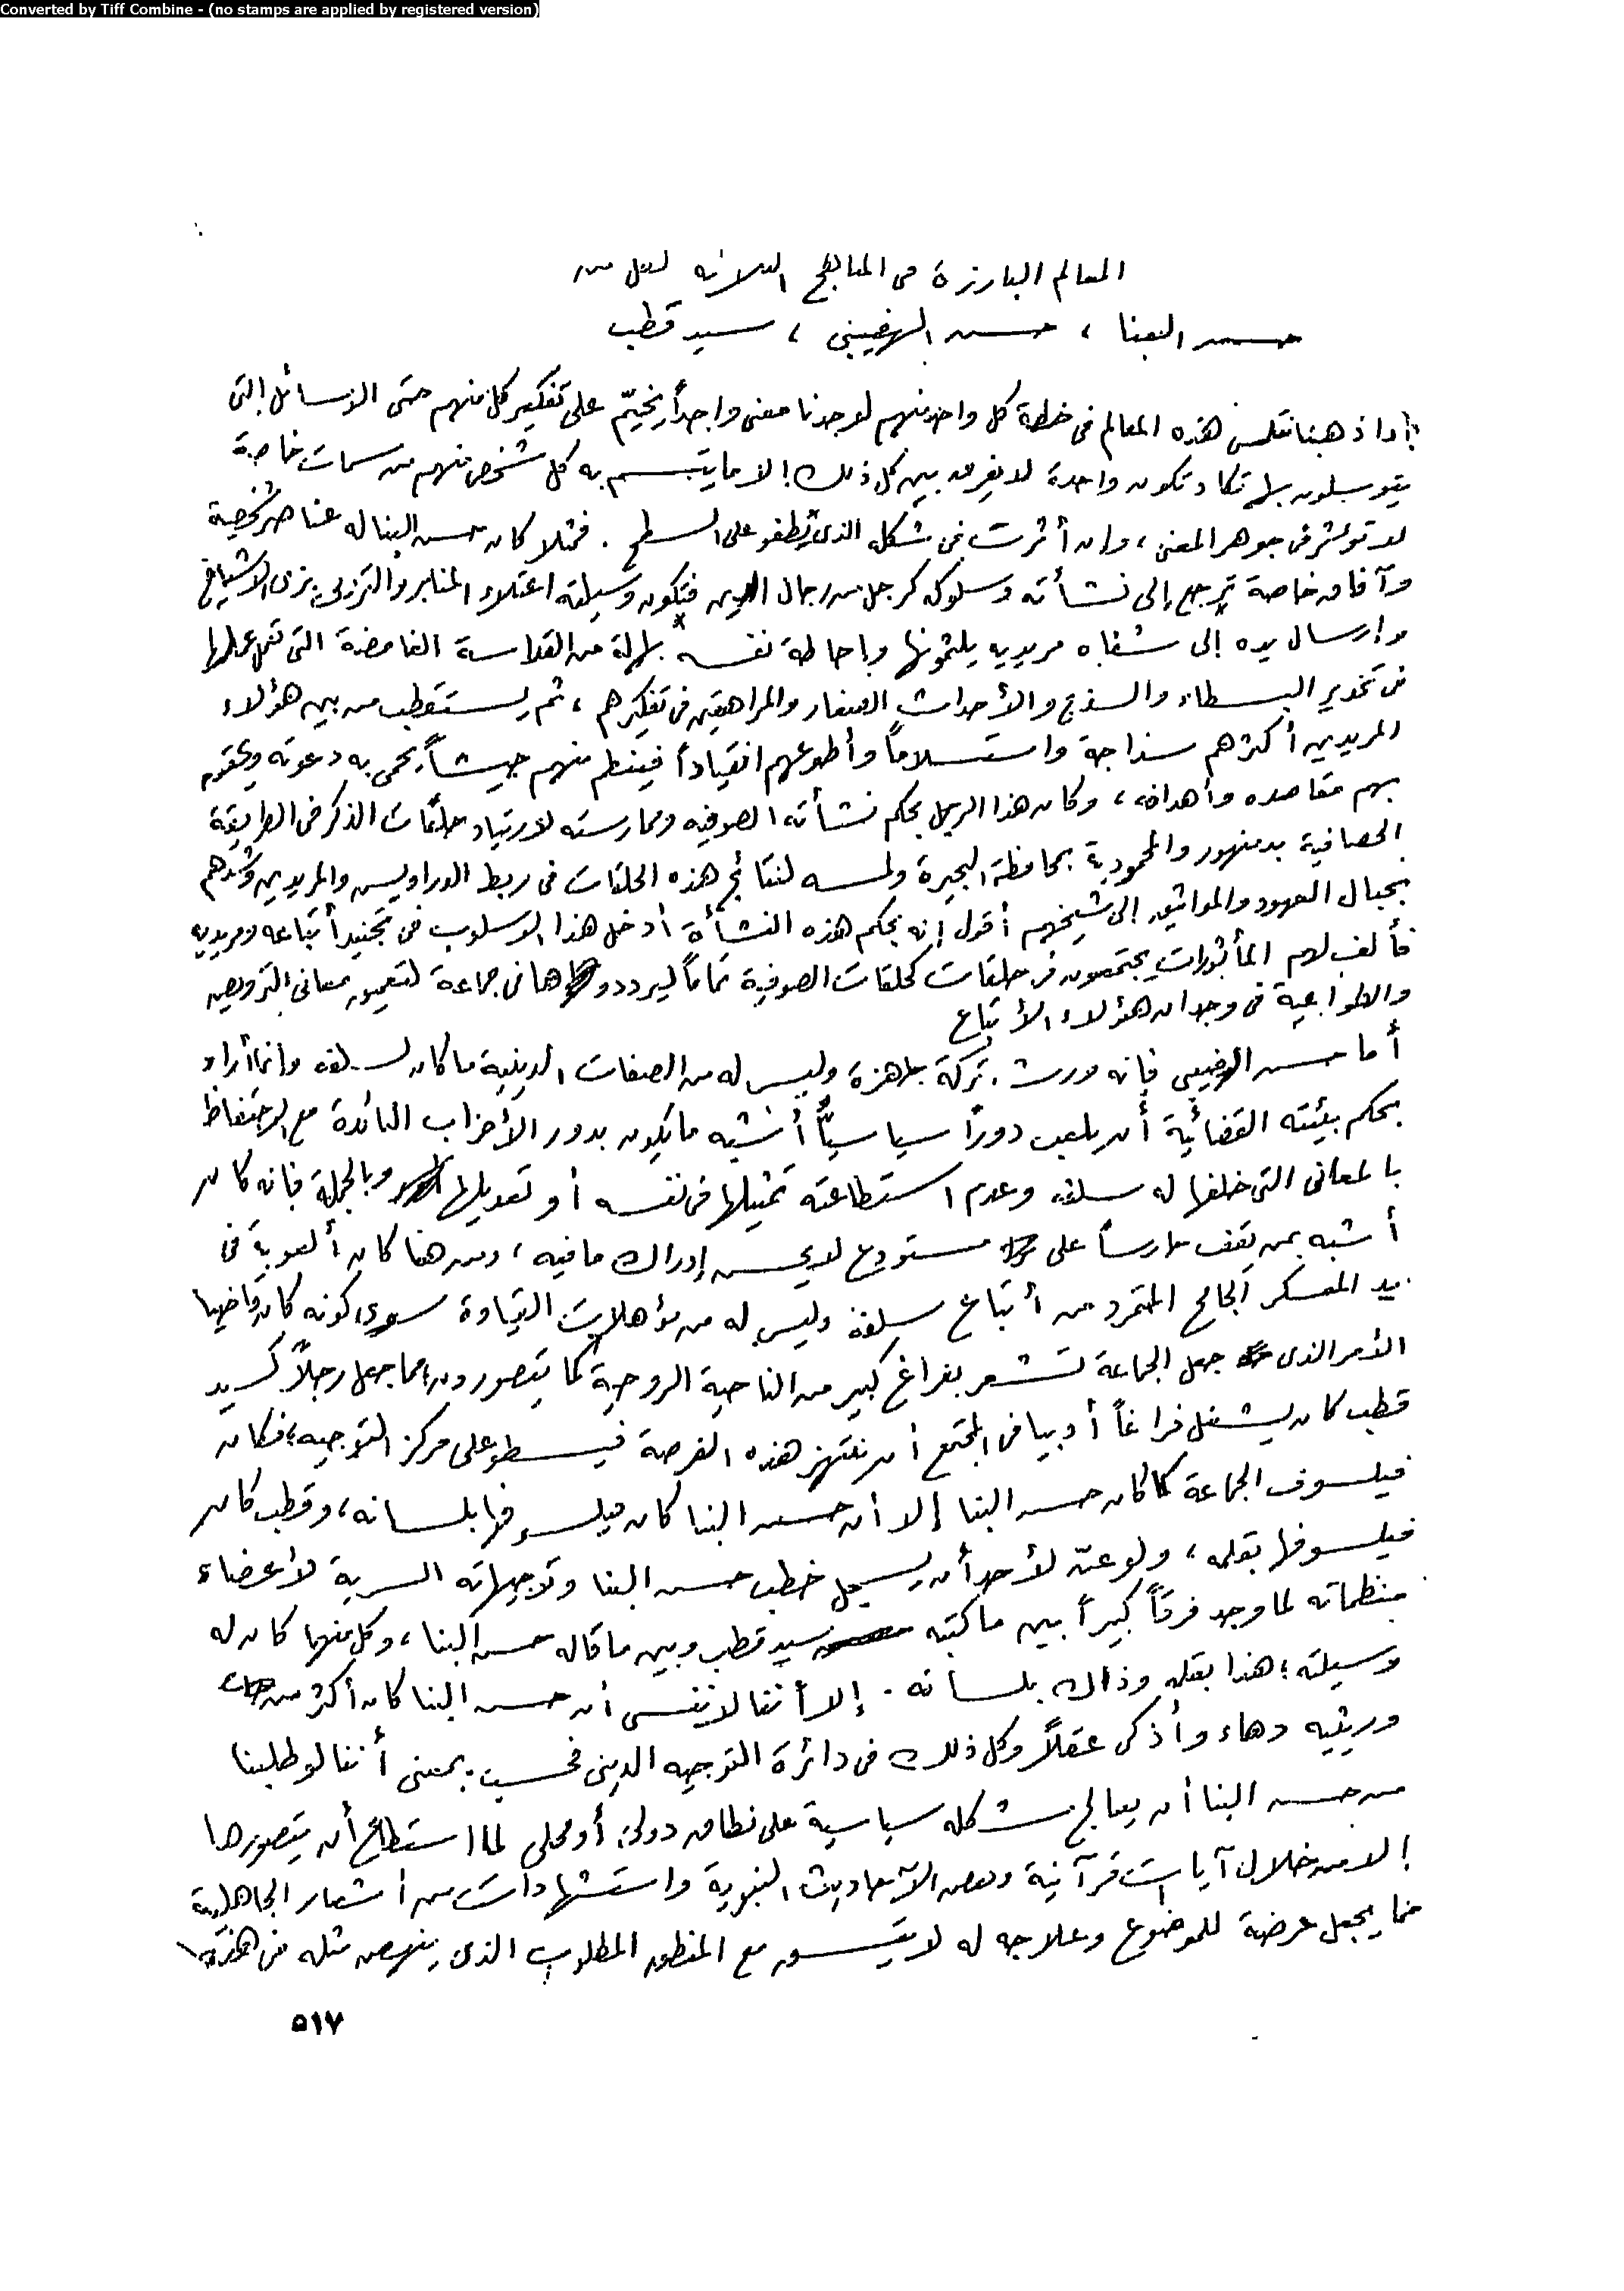 Converted by Tiff Combine - (no stamps are applied by registered version)
المعالم البارزة فى المناهج الثلاثه لكل من
حسن البنا ، حسن الهضيبى ، سيد قطب
إذا ذهبنا نتلمس هذه المعالم فى خطة كل واحد منهم لوجدنا معنى واحداً يخيّم على تفكير كل منهم حتى الوسائل التى
يتوسلون بها تكاد تكون واحدة لا يفرق بين كل ذلك إلا ما يتسم به كل شخص منهم من سمات خاصة
لا تؤثر فى جوهر المعنى ، وان أثرت فى شكله الذى يطفو على السطح . فمثلا كان حسن البنا له عناصر شخصية
وآفاق خاصة ترجع إلى نشأته وسلوكه كرجل من رجال الدين فتكون وسيلته اعتلاء المنابر والتزيى بزى الأشياخ
وإرسال يده إلى شفاه مريديه يلثمونها وإحاطة نفسه بهالة من القداسة الغامضة التى تعمل عملها
فى تخدير البسطاء والسذج والأحداث الصغار والمراهقين فى تفكيرهم ، ثم يستقطب من بين هؤلاء
المريدين أكثرهم سذاجة واستسلاماً وأطوعهم انقياداً فينظم منهم جيشاً يحمى به دعوته ويحقق
بهم مقاصده وأهدافه ، وكان هذا الرجل بحكم نشأته الصوفيه وممارسته لارتياد حلقات الذكر فى الطريقة
الحصافية بدمنهور والمحمودية بمحافظة البحيرة ولمسه لنتائج هذه الحلقات فى ربط الدراويش والمريدين وشدهم
بحبال العهود والمواثيق إلى شيخهم أقول إنه بحكم هذه النشأة أدخل هذا الاسلوب فى تجنيد أتباعه ومريديه
فألف لهم المأثورات يجتمعون فى حلقات كحلقات الصوفية تماماً ليرددوها فى جماعة لتعميق معانى الترويض
والطواعية فى وجدان هؤلاء الأتباع
أما حسن الهضيبى فإنه ورث تركة جاهزة وليس له من الصفات الدينية ما كان لسلفه وانما أراد
بحكم بيئته القضائية أن يلعب دوراً سياسيًّا أشبه ما يكون بدور الأحزاب البائدة مع الاحتفاظ
بالمعانى التى خلفها له سلفه وعدم استطاعته تمثيلها فى نفسه أو تعديلها وبالجملة فإنه كان
أشبه بمن يقف حارساً على مستودع لا يحسن إدراك ما فيه ، ومن هنا كان ألعوبة فى
يد المعسكر الجامح المتمرد من أتباع سلفه وليس له من مؤهلات القيادة سوى كونه كان قاضيا
الأمر الذى جعل الجماعة تشعر بفراغ كبير من الناحية الروحية كما يتصورون مما جعل رجلاً كسيد
قطب كان يشغل فراغاً أدبيا فى المجتمع أن ينتهز هذه الفرصة فيسطو على مركز التوجيه ، فكان
فيلسوف الجماعة كما كان حسن البنا إلا أن حسن البنا كان فيلسوفها بلسانه ، وقطب كان
فيلسوفها بقلمه ، ولو عنّ لأحد أن يسجل خطب حسن البنا وتوجيهاته السرية لأعضاء
منظماته لما وجد فرقاً كبيراً بين ما كتبه سيد قطب وبين ما قاله حسن البنا ، وكل منهما كان له
وسيلته ؛ هذا بقلمه وذاك بلسانه . إلا أننا لا ننسى أن حسن البنا كان أكثر من
وريثيه دهاء وأذكى عقلاً وكل ذلك فى دائرة التوجيه الدينى فحسب بمعنى أننا لو طلبنا
من حسن البنا أن يعالج مشكله سياسية على نطاق دولى أو محلى لما استطاع أن يتصورها
إلا من خلال آيات قرآنية وبعض الأحاديث النبوية واستشهادات من أشعار الجاهلية
مما يجعل عرضه للموضوع وعلاجه له لا يتسق مع المنظور المطلوب الذى ينهض مثله فى هذه
٥١٧